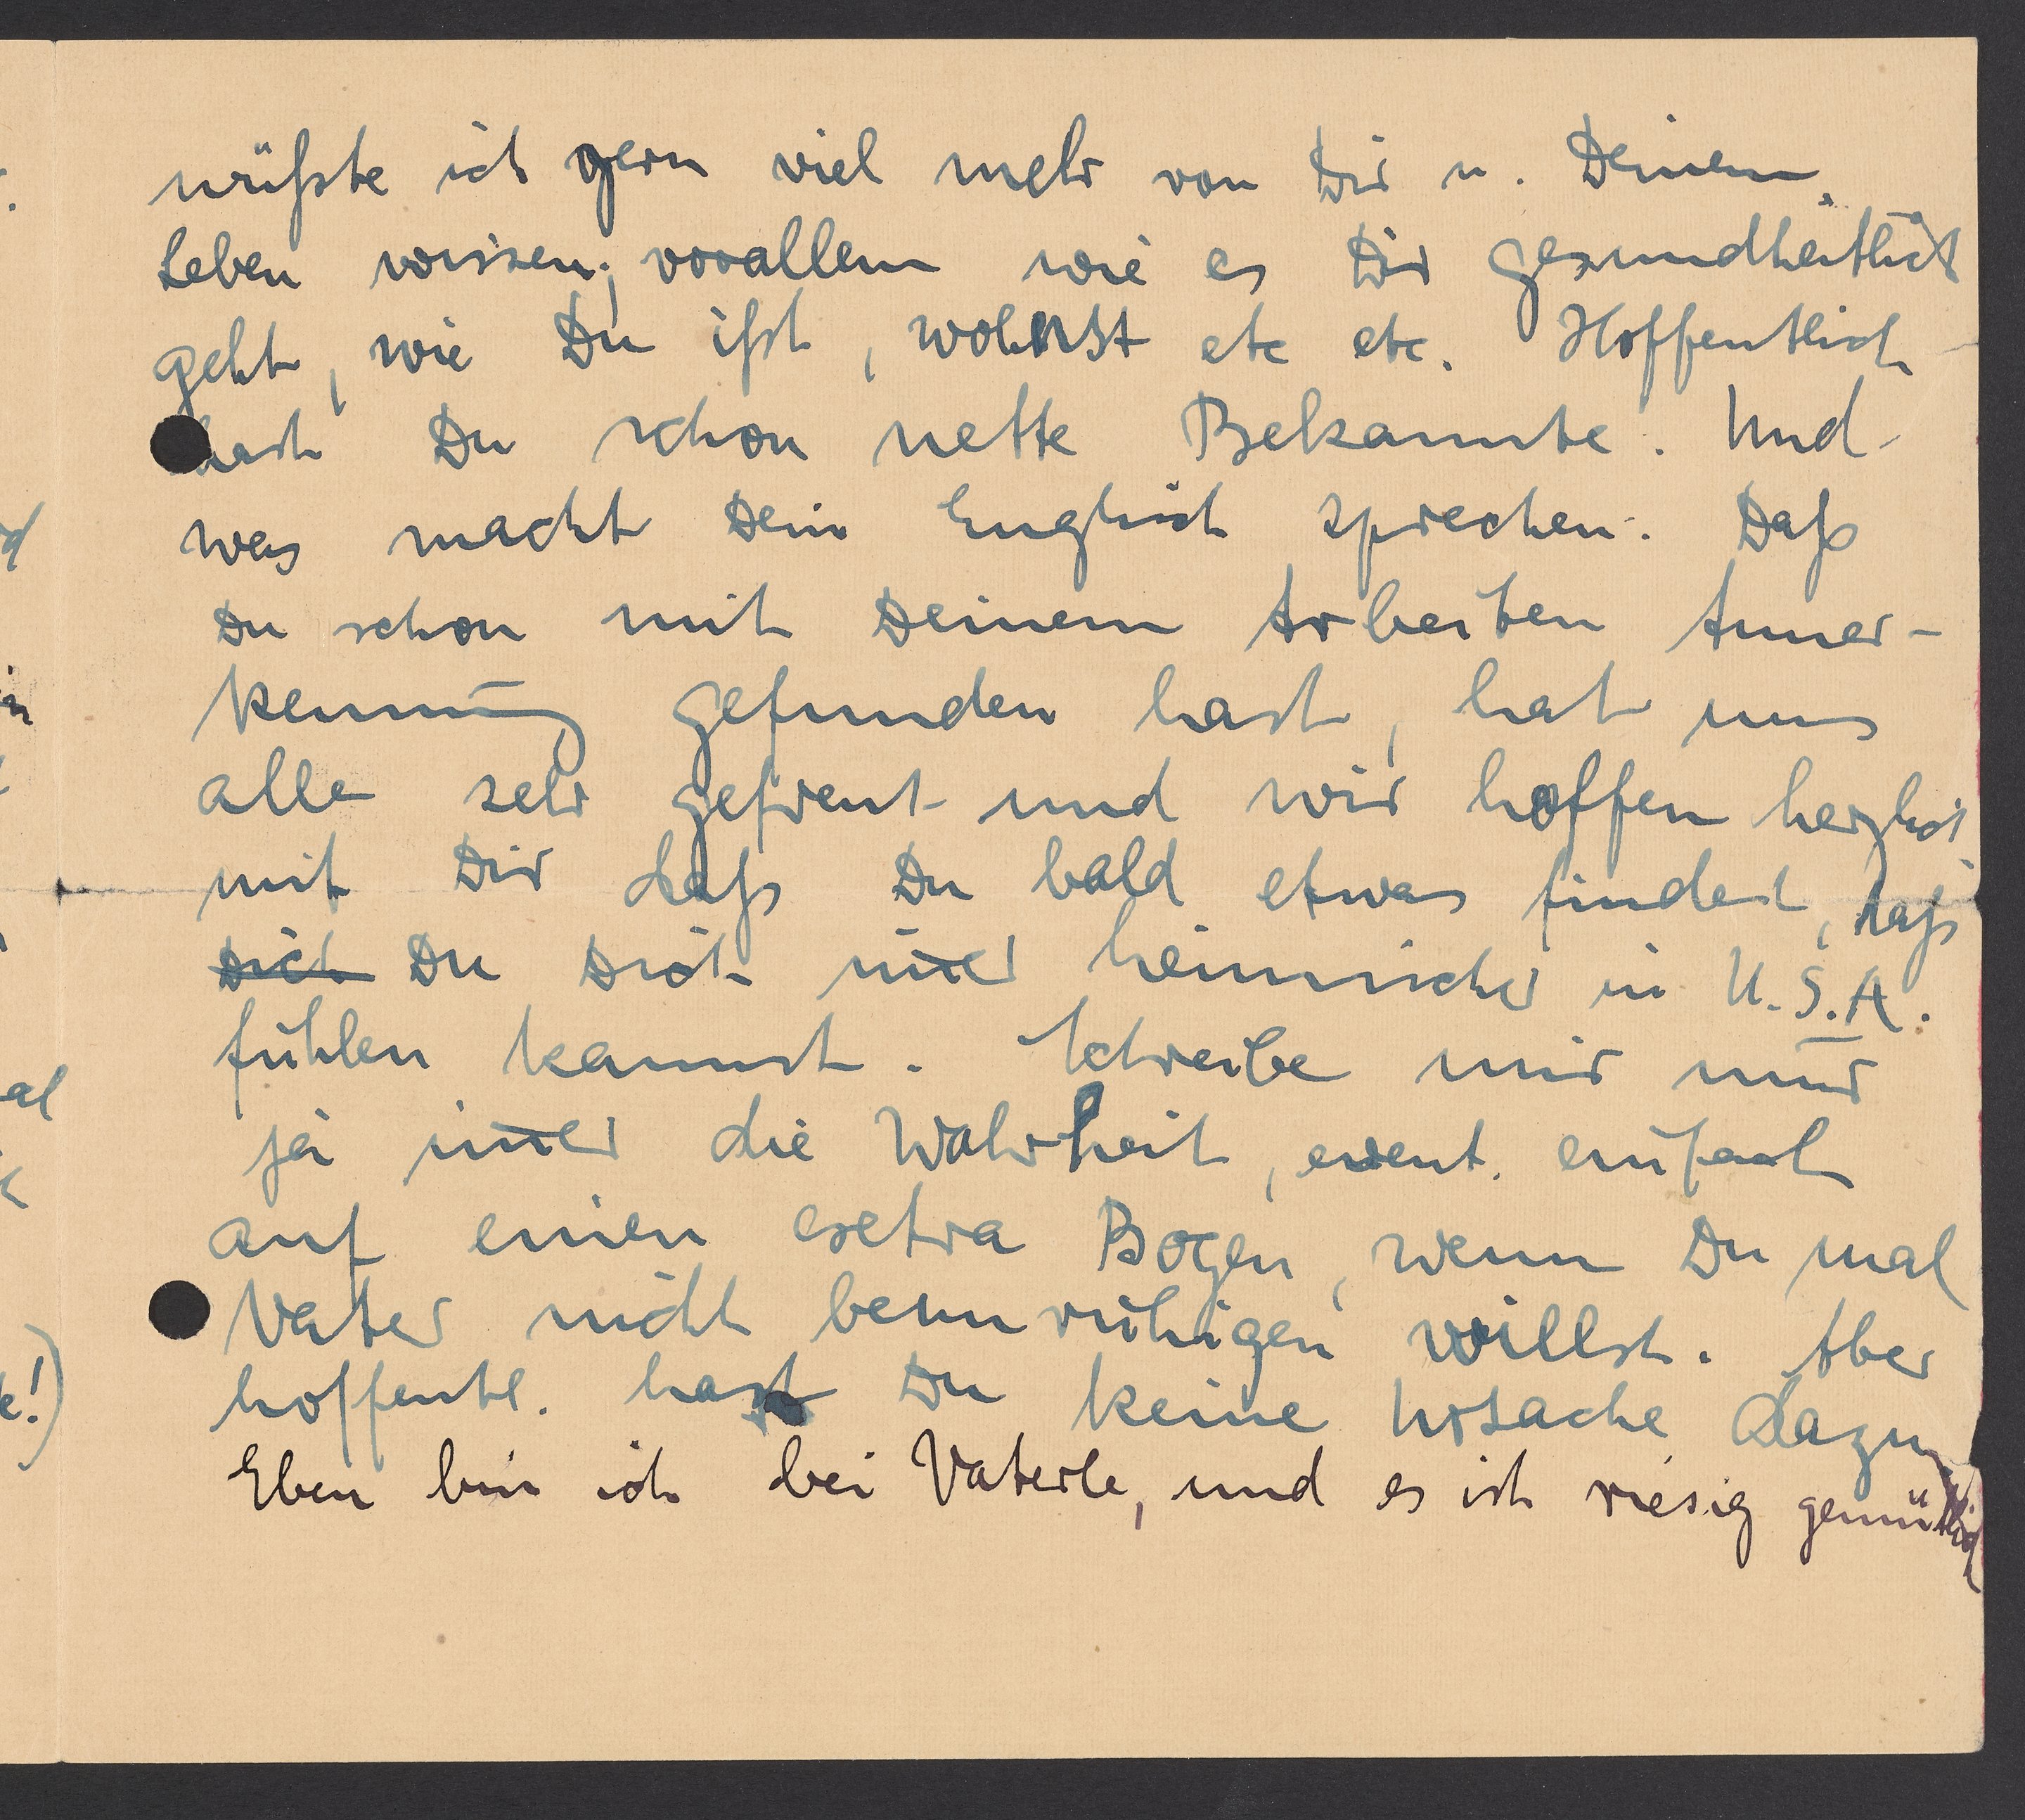 müßte ich gern viel mehr von Dir u. Deinem
Leben wissen, vorallem wie es Dir gesundheitlich
geht, wie Du ißt, wohnst etc etc. Hoffentlich
hast Du schon nette Bekannte. Und
was macht Dein Englisch sprechen. Daß
Du schon mit Deinem Arbeiten Anner-
kennung gefunden hast, hat uns
alle sehr gefreut und wir hoffen herzlich
mit Dir daß Du bald etwas findest, daß
Dich Du Dich im̄er heimischer in U.S.A.
fühlen kannst. Schreibe mir nur
ja im̄er die Wahrheit, event. einfach
auf einen extra Bogen, wenn Du mal
Vater nicht beunruhigen willst. Aber
hoffentl. hast Du keine Ursache dazu.
Eben bin ich bei Vaterle, und es ist riesig gemütlich